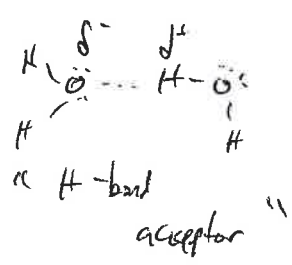 δ⁻ δ⁺
H O H-O
H H
" H-bond
acceptor "